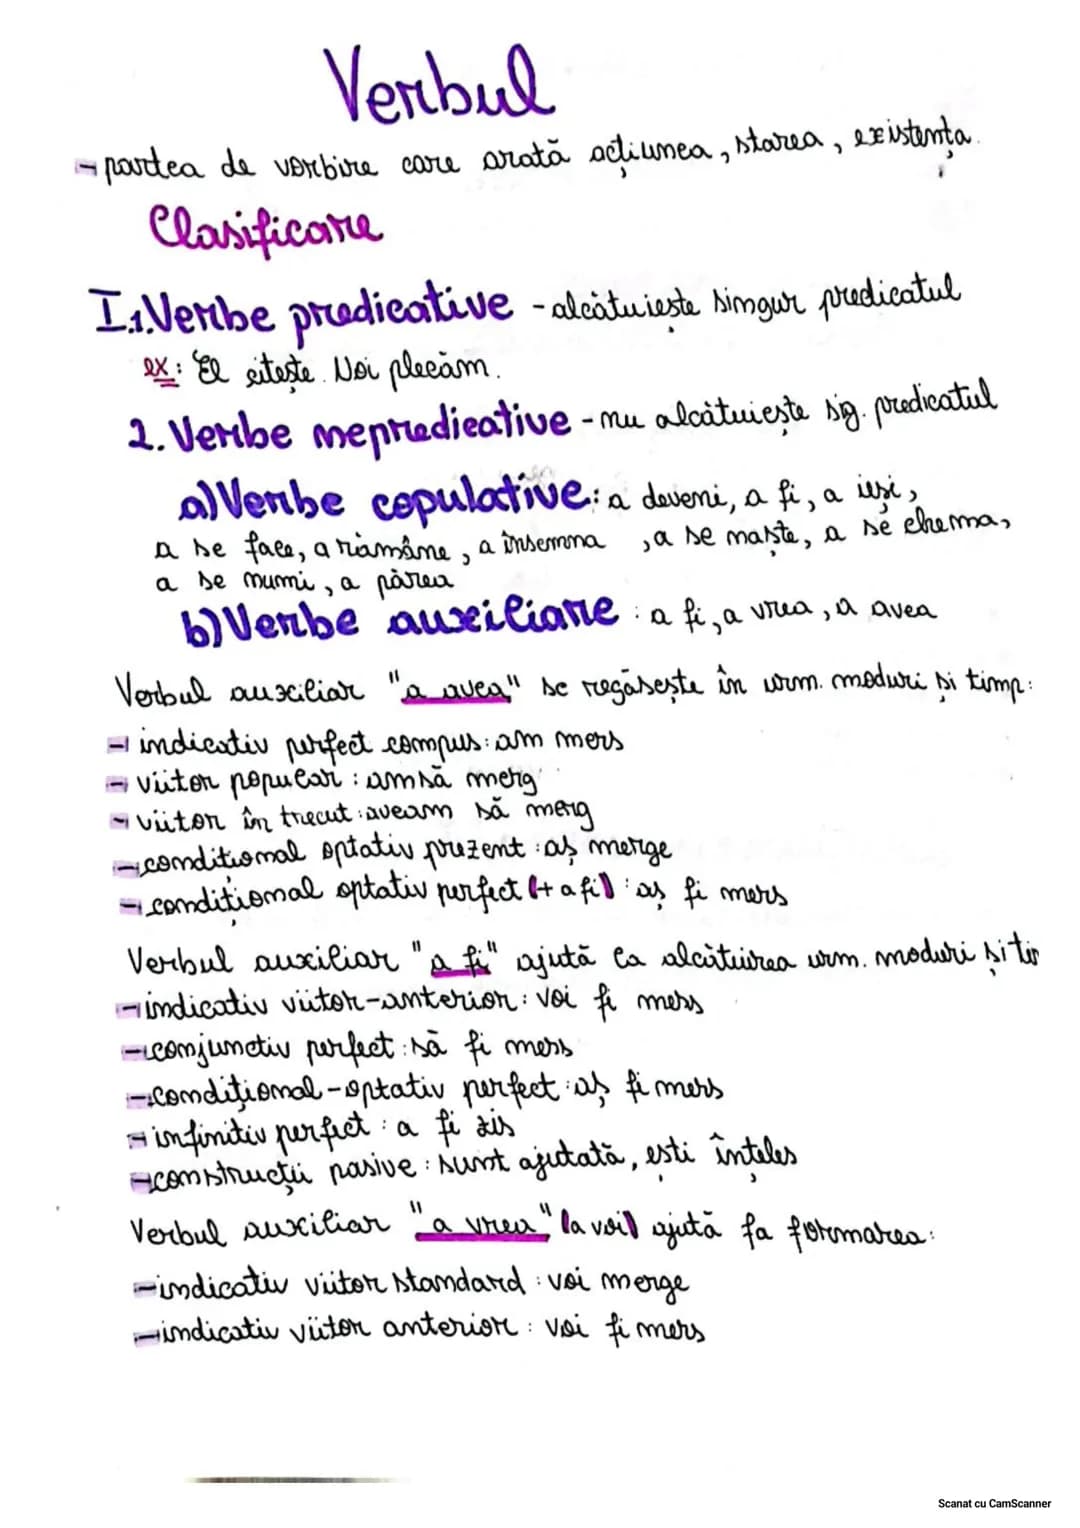 Verbul
- partea de vorbire care arată acțiunea, starea, existența.
Clasificare
I.1.Verbe predicative - alcătuiește singur predicatul
ex: El citește. Noi plecăm.
2. Verbe nepredicative - nu alcătuiește sig. predicatul
a) Verbe copulative: a deveni, a fi, a ieși,
a se face, a rămâne, a însemna, a se naște, a se chema,
a se numi, a părea
b) Verbe auxiliare: a fi, a vrea, a avea
Verbul auxiliar "a avea" se regăsește în urm. moduri și timp:
- indicativ perfect compus: am mers
- viitor popular: am să merg
- viitor în trecut: aveam să merg
- condițional optativ prezent: aș merge
- condițional optativ perfect (+ a fi): aș fi mers
Verbul auxiliar "a fi" ajută la alcătuirea urm. moduri și tip
- indicativ viitor-anterior: voi fi mers
- conjunctiv perfect: să fi mers
- condițional-optativ perfect: aș fi mers
- infinitiv perfect: a fi zis
- construcții pasive: sunt ajutată, ești înțeles
Verbul auxiliar "a vrea" (a voi) ajută fa formarea:
- indicativ viitor standard: voi merge
- indicativ viitor anterior: voi fi mers
Scanat cu CamScanner